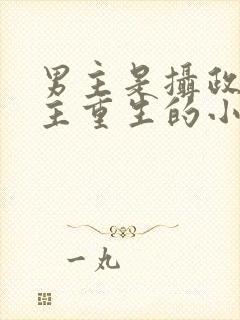 男主是攝政
主重生的小
一丸